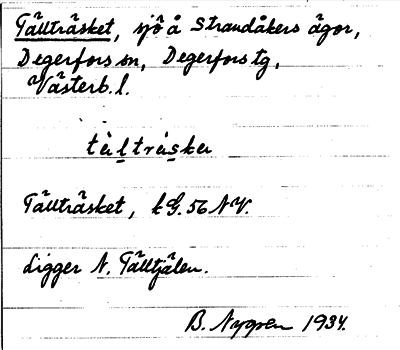 Tällträsket, sjö å Strandåkers ägor,
Degerfors sn, Degerfors tg,
Västerb. l.
tälträsket
Tällträsket, k G. 56 N.V.
Ligger N. Tälltjälen.
B. Nygren 1934.